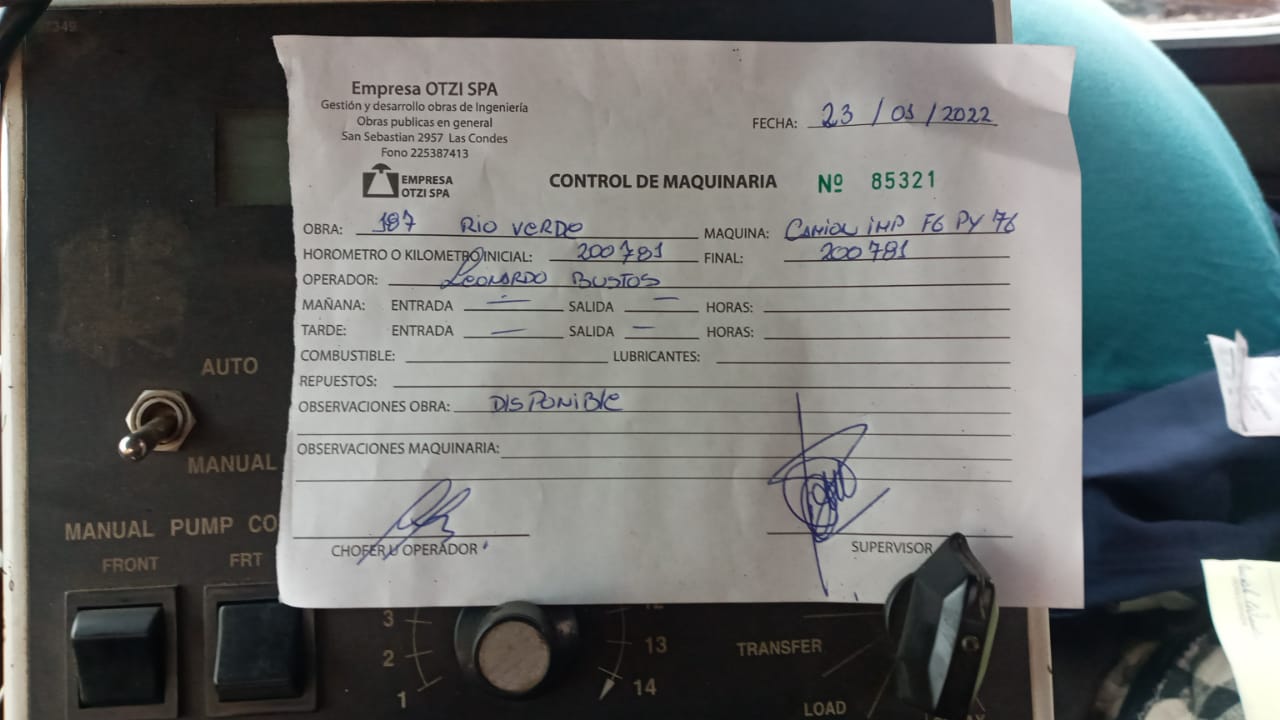 Empresa OTZI SPA
Gestión y desarrollo obras de Ingeniería
Obras publicas en general
San Sebastian 2957 Las Condes
Fono 225387413
EMPRESA
OTZI SPA
FECHA: 23 / 01 / 2022
CONTROL DE MAQUINARIA Nº 85321
OBRA: 187 RIO VERDE MAQUINA: CAMION IMP FG PY 76
HOROMETRO O KILOMETRO INICIAL: 200781 FINAL: 200781
OPERADOR: LEONARDO BUSTOS
MAÑANA: ENTRADA — SALIDA — HORAS:
TARDE: ENTRADA — SALIDA — HORAS:
COMBUSTIBLE: LUBRICANTES:
REPUESTOS:
OBSERVACIONES OBRA: DISPONIBLE
OBSERVACIONES MAQUINARIA:
CHOFER U OPERADOR
SUPERVISOR
AUTO
MANUAL
MANUAL PUMP CO
FRONT
FRT
3
2
1
12
13
14
TRANSFER
LOAD